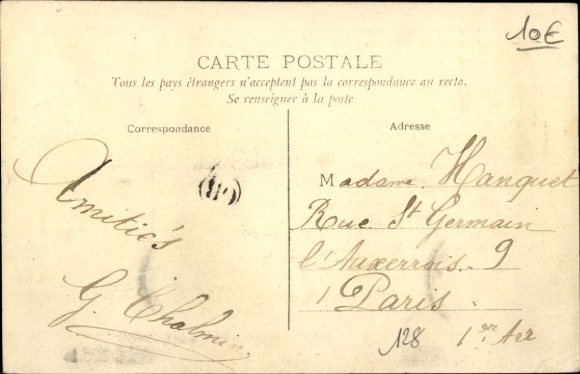 10€
CARTE POSTALE
Tous les pays étrangers n'acceptent pas la correspondance au recto.
Se renseigner à la poste
Correspondance
Amitiés
G. Chalmin
Adresse
Madame Hanquet
Rue St Germain
l'Auxerrois. 9
Paris.
128
1er Arr